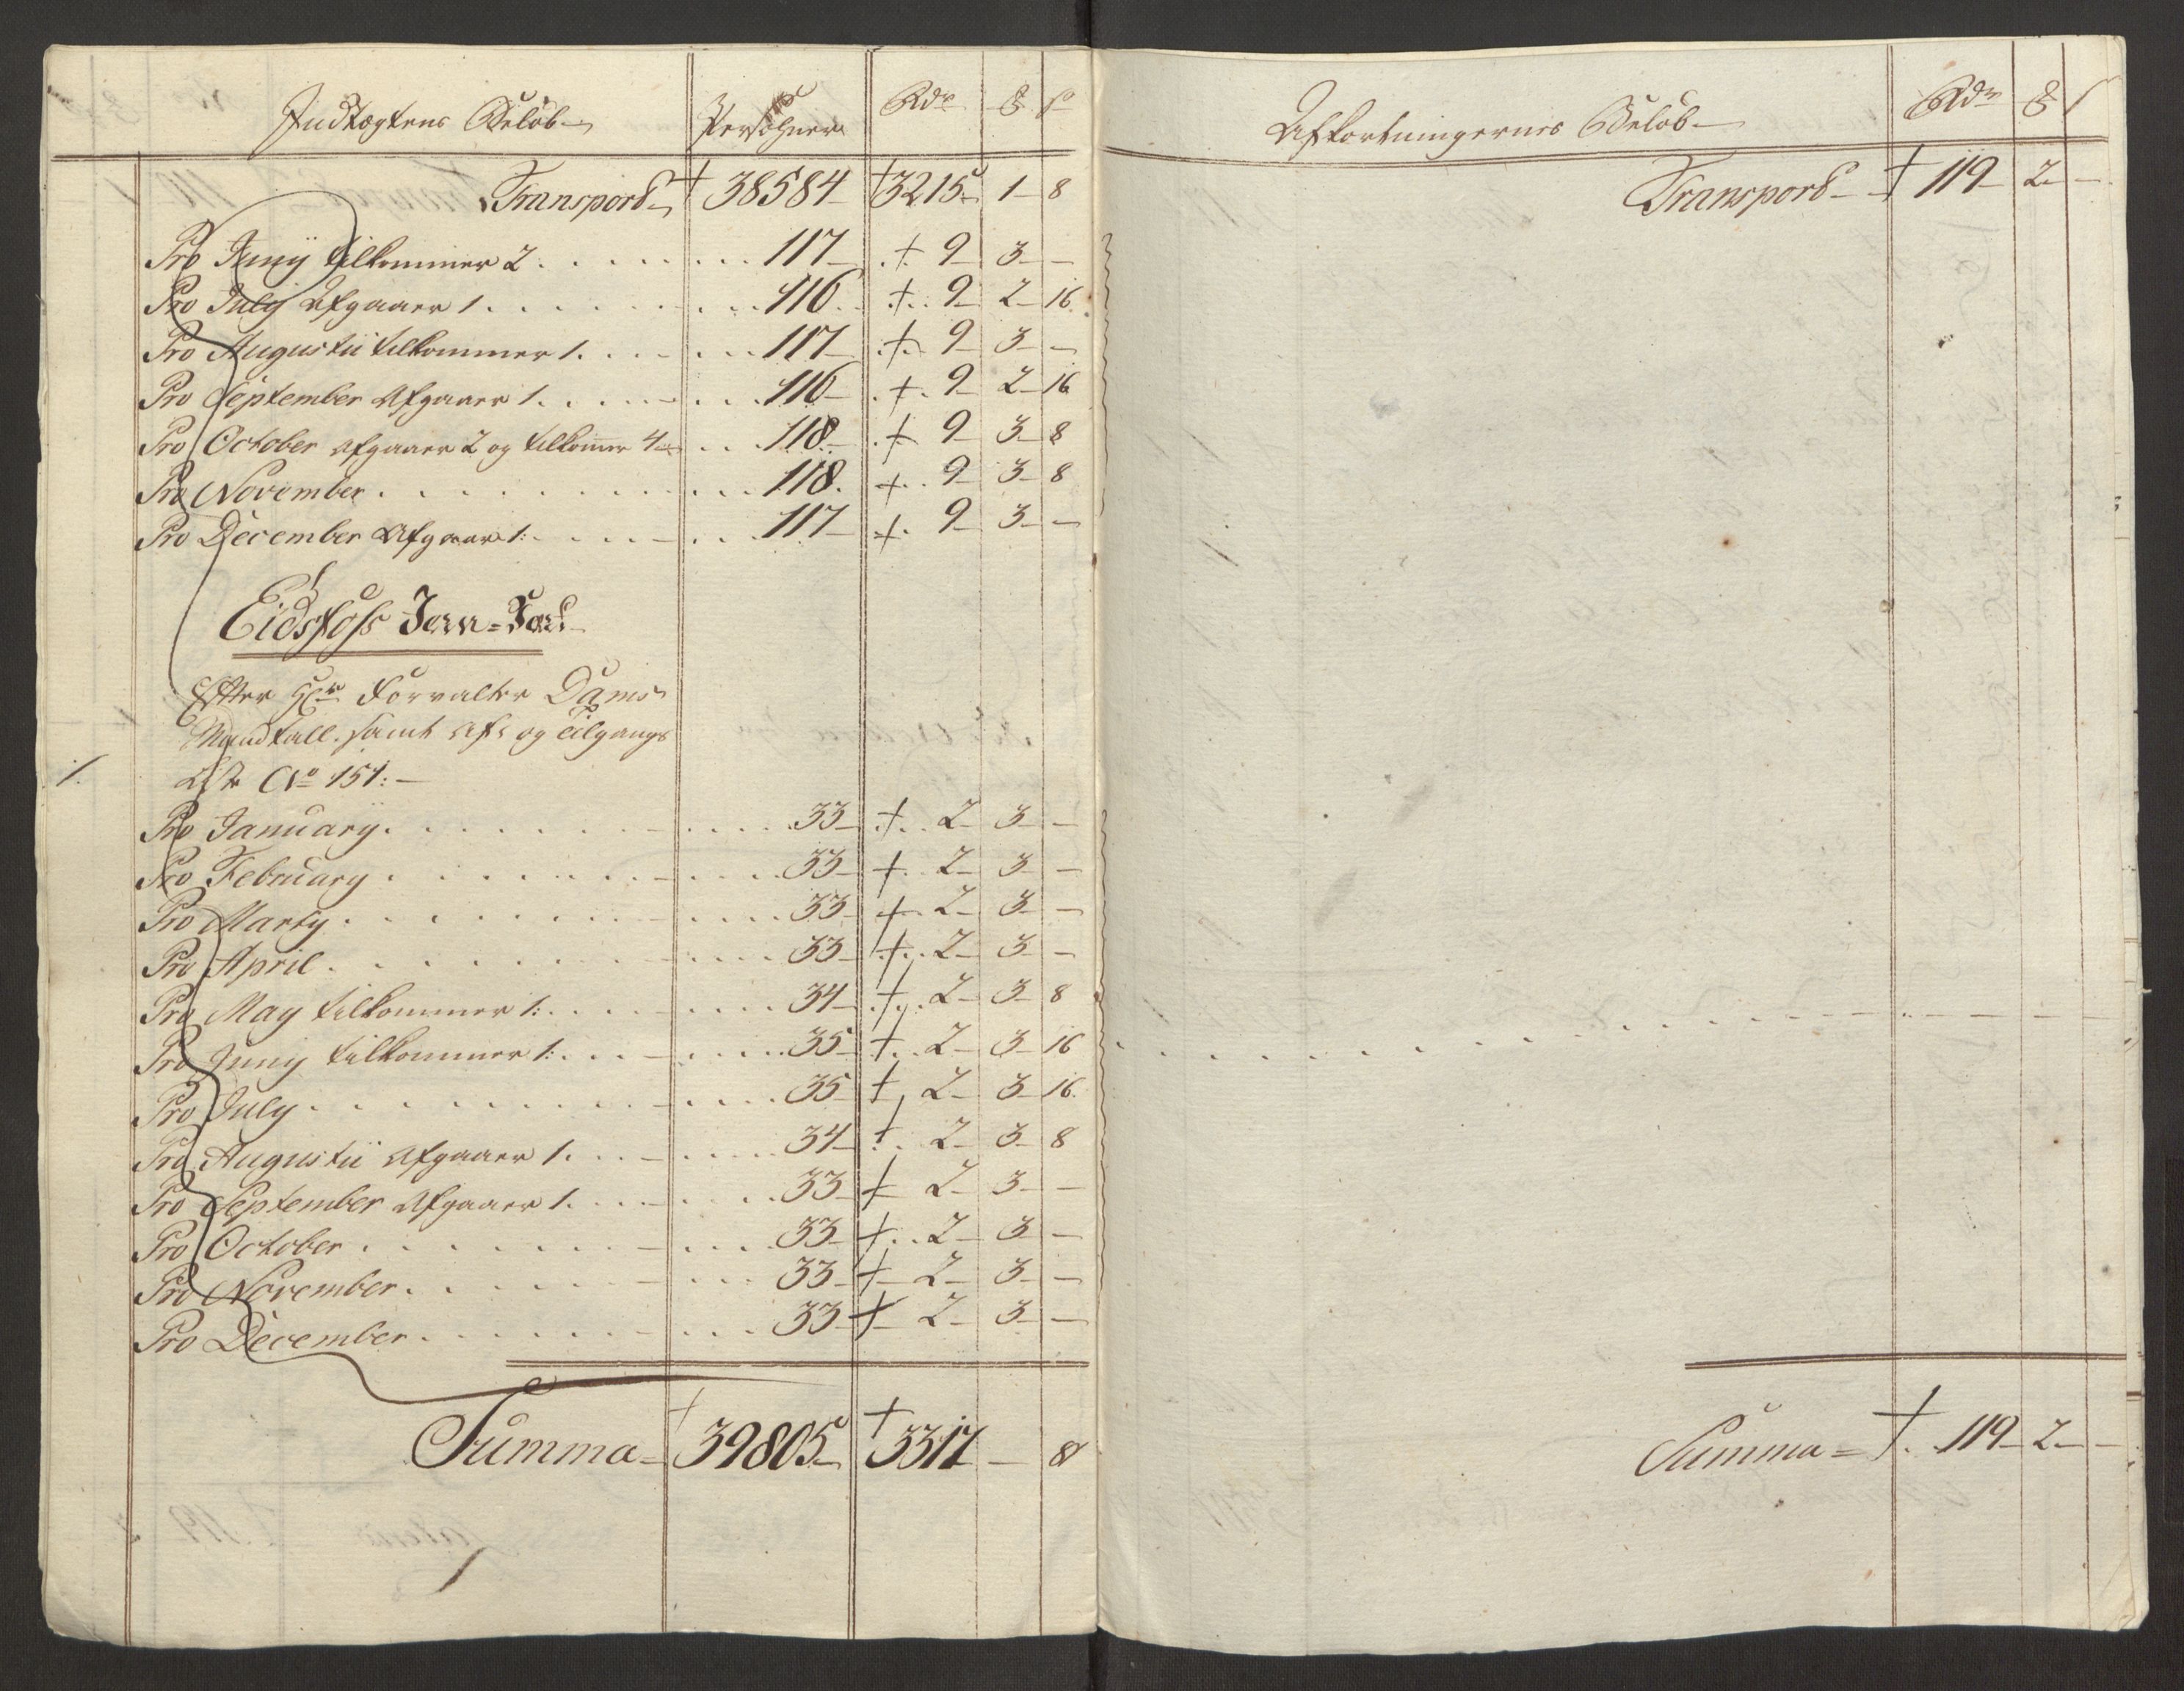 Indtægtens Beløb Persohner Rdr ß
Transport 38584 3215 1 8
Pro Junÿ tilkommer 2 117 9 3 -
Pro Julÿ Afgaaer 1 116 9 2 16
Pro Augustii tilkommer 1 117 9 3 -
Pro September Afgaaer 1 116 9 2 16
Pro October Afgaaer 2 og tilkommer 4 118 9 3 8
Pro November 118 9 3 8
Pro December Afgaaer 1 117 9 3 -
Eidsfoss Jern-
Efter Hr Forvalter Dams
Mandtall samt Af- og tilgangs
1. Liste No 151:
Pro January 33 2 3 -
Pro February 33 2 3 -
Pro Marty 33 2 3 -
Pro April 33 2 3 -
Pro May tilkommer 1: 34 2 3 8
Pro Juny tilkommer 1: 35 2 3 16
Pro July 35 2 3 16
Pro Augustii Afgaaer 1. 34 2 3 8
Pro September Afgaaer 1. 33 2 3 -
Pro October 33 2 3 -
Pro November 33 2 3 -
Pro December 33 2 3 -
Summa 39805 3317 - 8
Afkortningernes Beløb Rdr ß
Transport 119 2 -
Summa 119 2 -